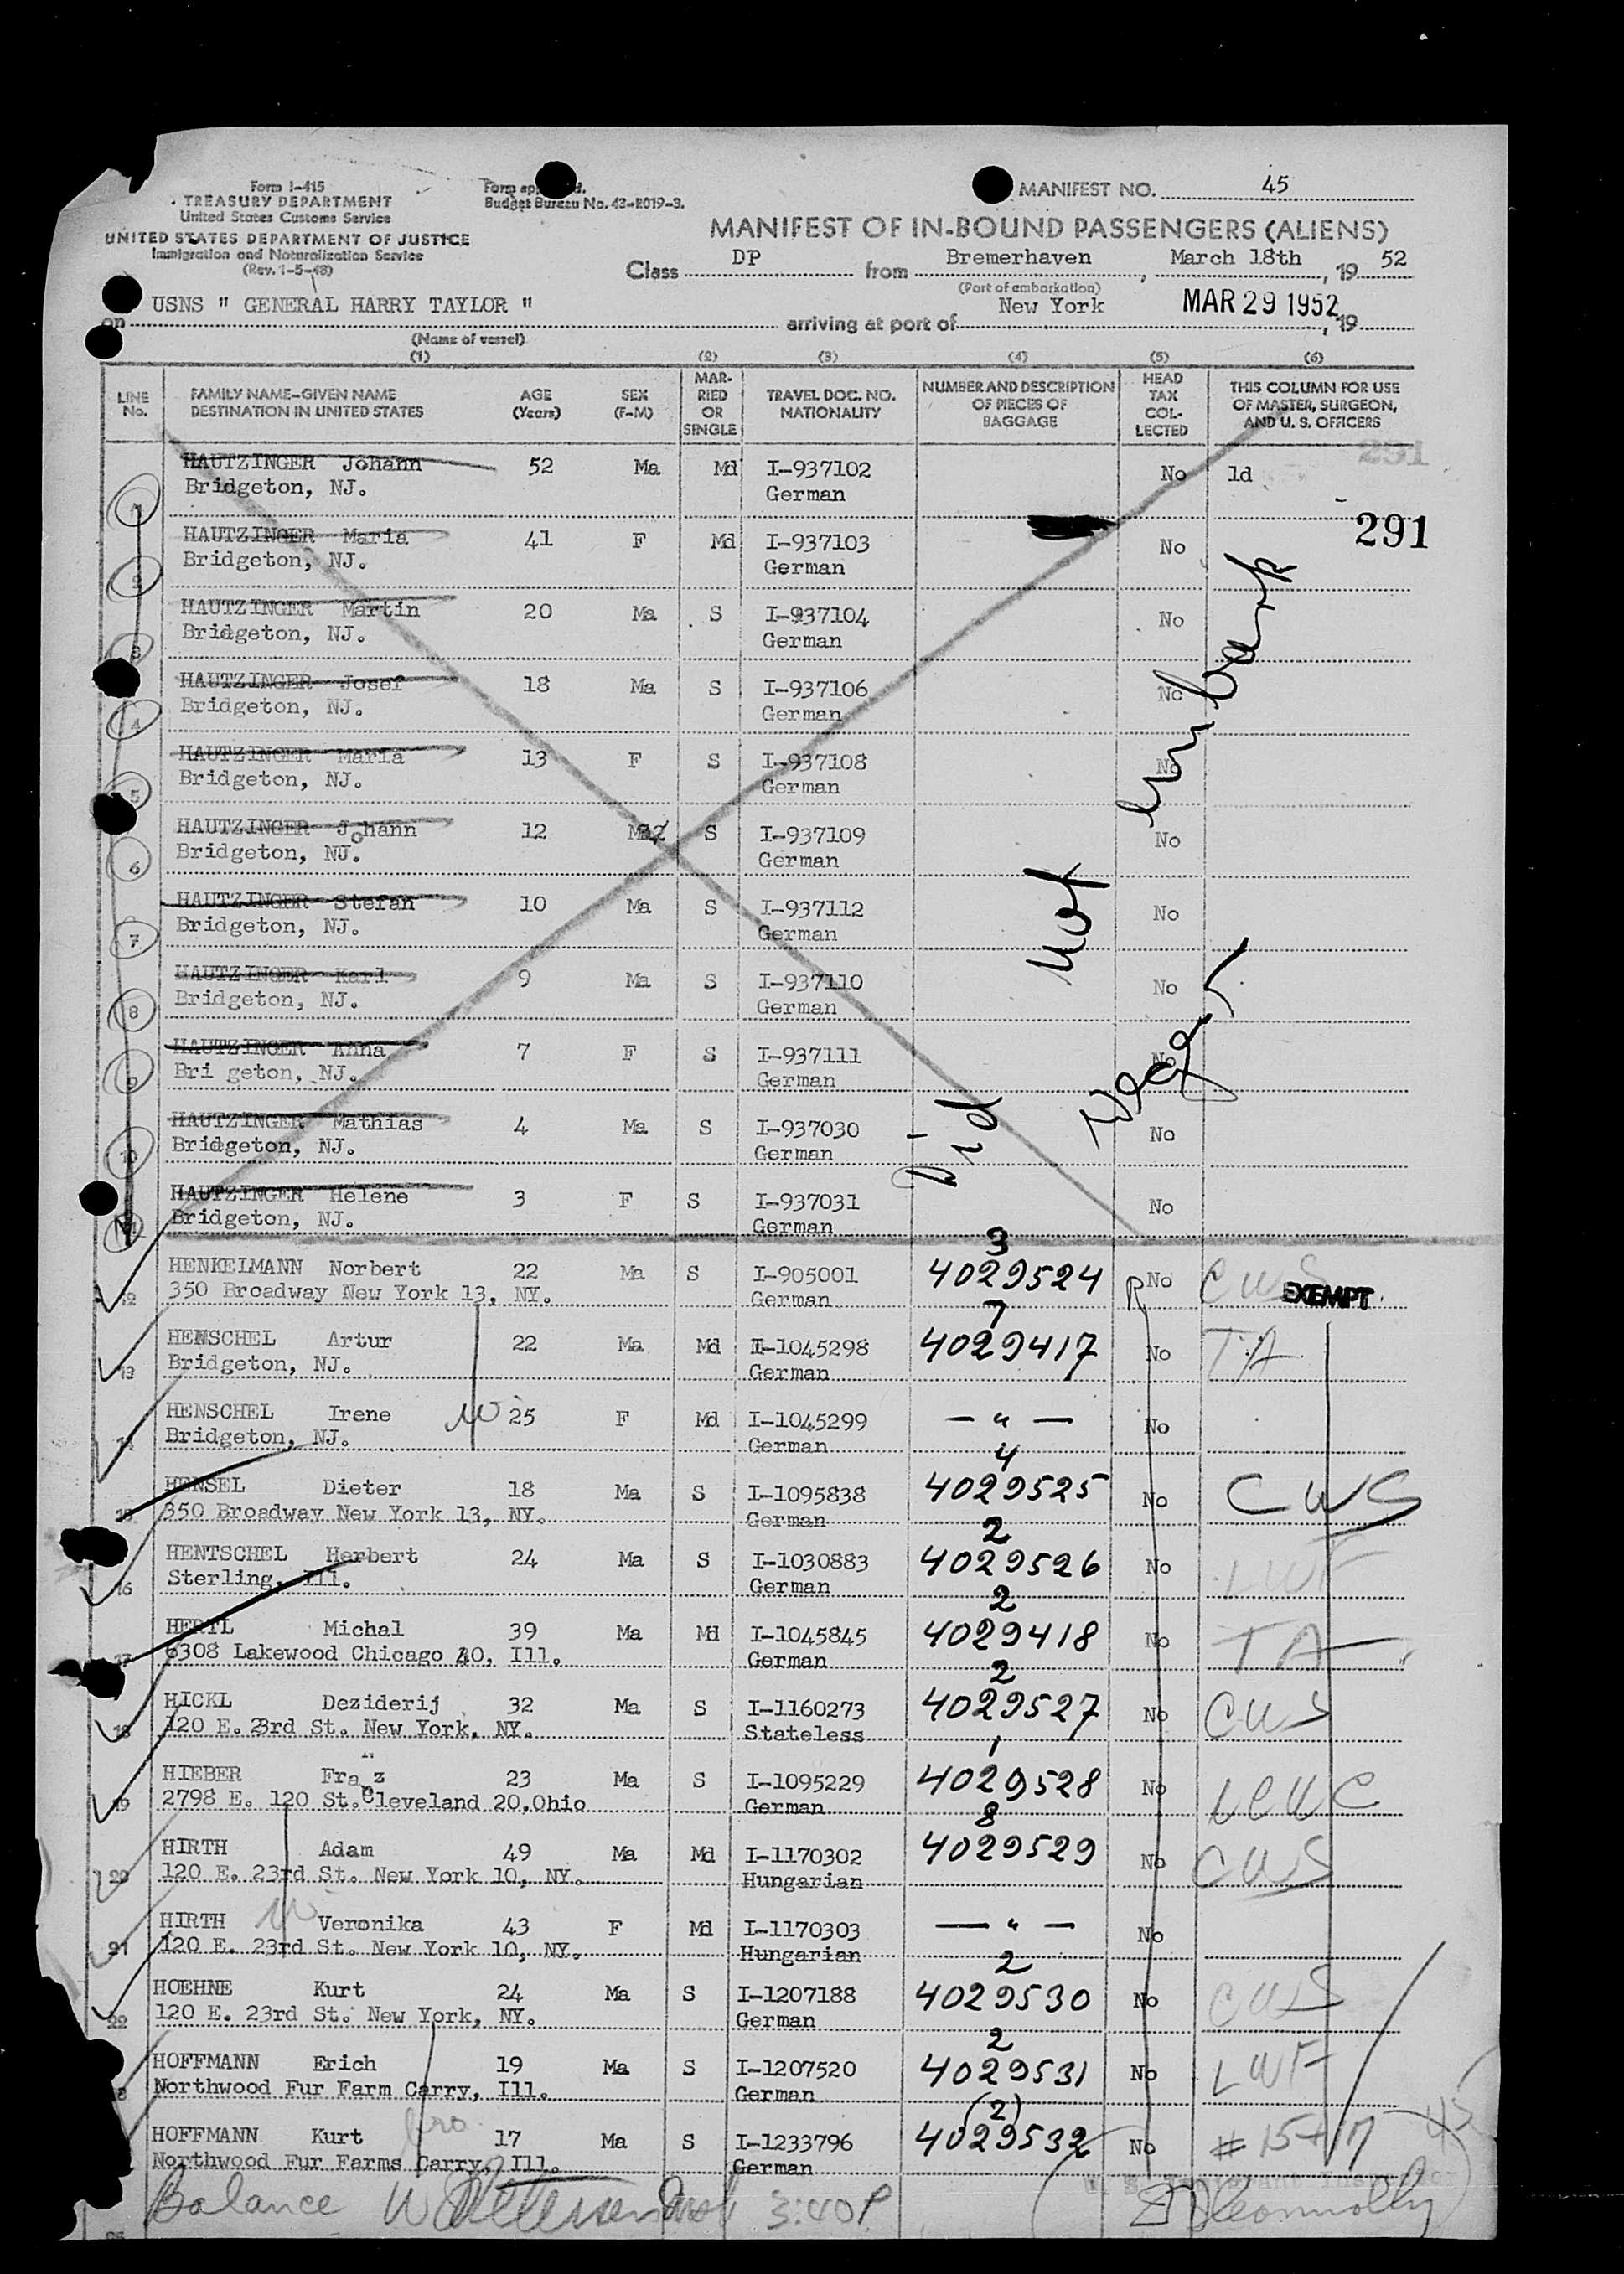 Form I-415
TREASURY DEPARTMENT
United States Customs Service
UNITED STATES DEPARTMENT OF JUSTICE
Immigration and Naturalization Service
(Rev. 1-5-48)
Form app d.
Budget Bureau No. 43-R019-3.
MANIFEST NO. 45
MANIFEST OF IN-BOUND PASSENGERS (ALIENS)
Class DP from Bremerhaven, March 18th, 19 52
(Port of embarkation)
on USNS " GENERAL HARRY TAYLOR " arriving at port of New York MAR 29 1952, 19
(Name of vessel)
(1) (2) (3) (4) (5) (6)
LINE No. FAMILY NAME-GIVEN NAME DESTINATION IN UNITED STATES AGE (Years) SEX (F-M) MARRIED OR SINGLE TRAVEL DOC. NO. NATIONALITY NUMBER AND DESCRIPTION OF PIECES OF BAGGAGE HEAD TAX COLLECTED THIS COLUMN FOR USE OF MASTER, SURGEON, AND U. S. OFFICERS
291
HAUTZINGER Johann 52 Ma Md I-937102 No ld
1 Bridgeton, NJ. German
291
HAUTZINGER Maria 41 F Md I-937103 No
2 Bridgeton, NJ. German
HAUTZINGER Martin 20 Ma S I-937104 No
3 Bridgeton, NJ. German
HAUTZINGER Josef 18 Ma S I-937106 No
4 Bridgeton, NJ. German
HAUTZINGER Maria 13 F S I-937108 No
5 Bridgeton, NJ. German
HAUTZINGER Johann 12 Ma S I-937109 No
6 Bridgeton, NJ. German
HAUTZINGER Stefan 10 Ma S I-937112 No
7 Bridgeton, NJ. German
HAUTZINGER Karl 9 Ma S I-937110 No
8 Bridgeton, NJ. German
HAUTZINGER Anna 7 F S I-937111 No
9 Bri geton, NJ. German
HAUTZINGER Mathias 4 Ma S I-937030 No
10 Bridgeton, NJ. German
HAUTZINGER Helene 3 F S I-937031 No
11 Bridgeton, NJ. German
Did not embark
3
HENKELMANN Norbert 22 Ma S I-905001 4029524 R No CWS EXEMPT
12 350 Broadway New York 13, NY. German
7
HENSCHEL Artur 22 Ma Md I-1045298 4029417 No TA
13 Bridgeton, NJ. German
HENSCHEL Irene W 25 F Md I-1045299 — " — No
14 Bridgeton, NJ. German
4
HENSEL Dieter 18 Ma S I-1095838 4029525 No CWS
15 350 Broadway New York 13, NY. German
2
HENTSCHEL Herbert 24 Ma S I-1030883 4029526 No LWF
16 Sterling, Ill. German
2
HERTL Michal 39 Ma Md I-1045845 4029418 No TA
17 6308 Lakewood Chicago 40, Ill. German
2
HICKL Deziderij 32 Ma S I-1160273 4029527 No CWS
18 120 E. 23rd St. New York, NY. Stateless
1
HIEBER Franz 23 Ma S I-1095229 4029528 No
19 2798 E. 120 St. Cleveland 20.Ohio German
8
HIRTH Adam 49 Ma Md I-1170302 4029529 No CWS
20 120 E. 23rd St. New York 10, NY. Hungarian
HIRTH W Veronika 43 F Md I-1170303 — " — No
21 120 E. 23rd St. New York 10, NY. Hungarian
2
HOEHNE Kurt 24 Ma S I-1207188 4029530 No CWS
22 120 E. 23rd St. New York, NY. German
2
HOFFMANN Erich 19 Ma S I-1207520 4029531 No LWF
Northwood Fur Farm Carry, Ill. German
(2)
HOFFMANN Kurt bro 17 Ma S I-1233796 4029532 No # 15+17
Northwood Fur Farms Carry, Ill. German
Balance 3:40 P